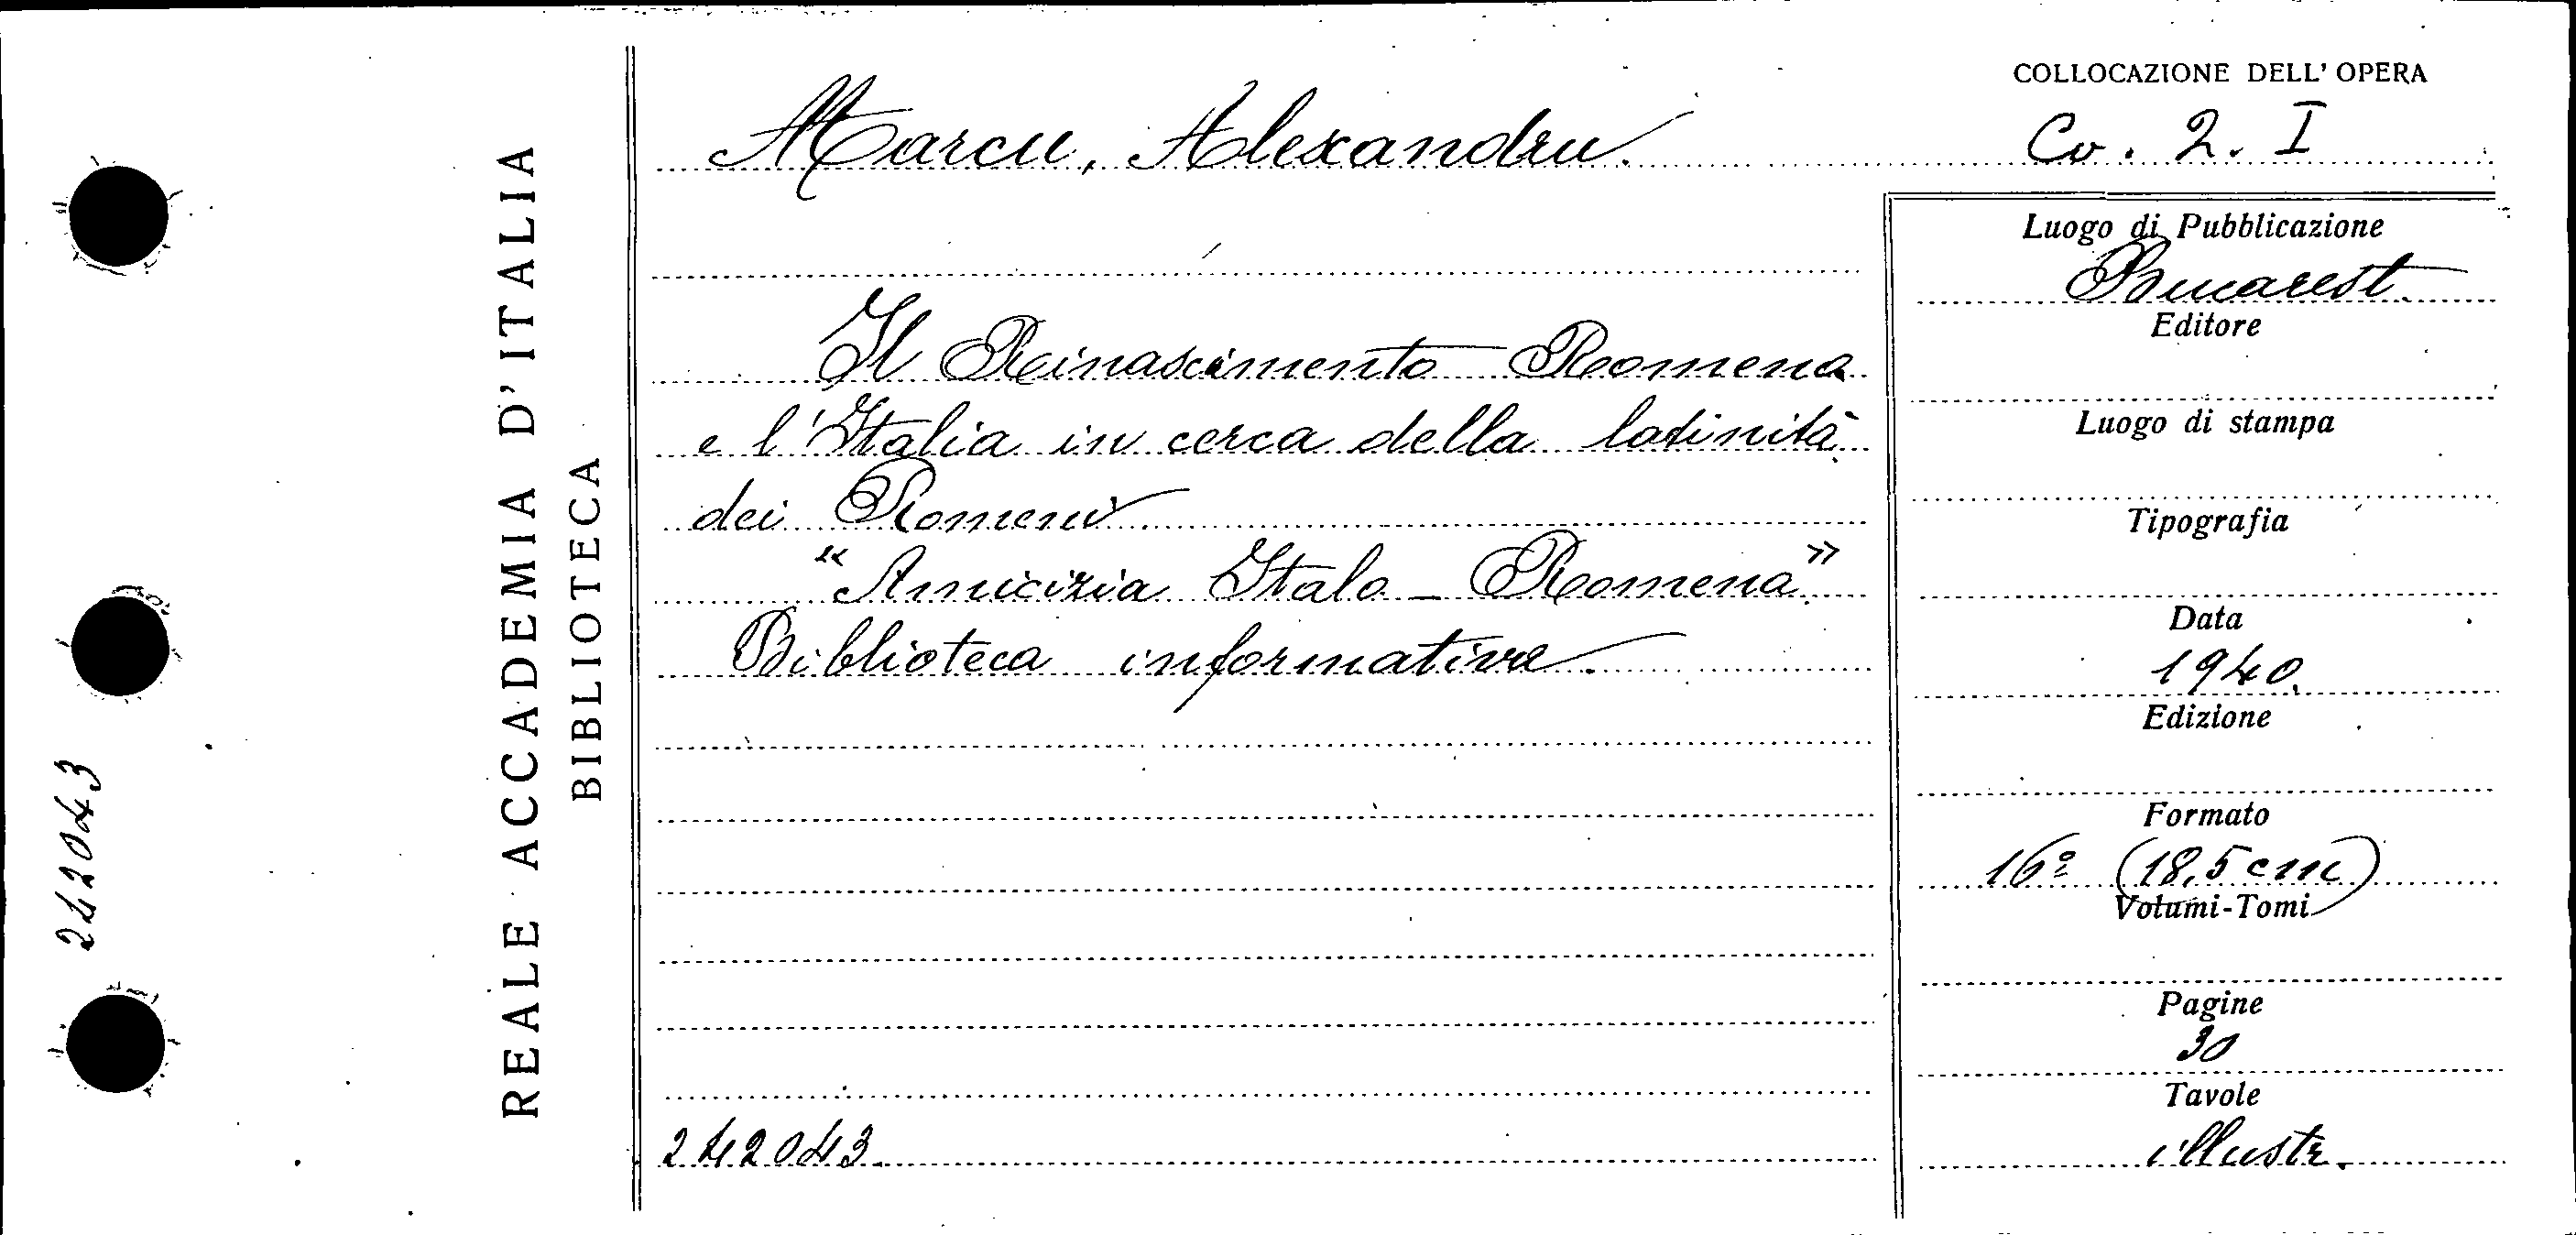 REALE ACCADEMIA D'ITALIA
BIBLIOTECA
242043
Marcu, Alexandru.
COLLOCAZIONE DELL' OPERA
Co. 2. I
Il Rinascimento Romena
e l'Italia in cerca della latinità
dei Romeni
"Amicizia Italo-Romena"
Biblioteca informativa.
242043.
Luogo di Pubblicazione
Bucarest.
Editore
Luogo di stampa
Tipografia
Data
1940.
Edizione
Formato
16º (18,5 cm)
Volumi-Tomi
Pagine
30
Tavole
illustr.